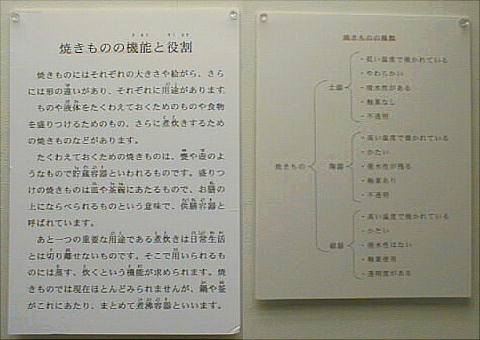 焼きものの機能と役割
焼きものにはそれぞれの大きさや絵がら、さら
には形の違いがあり、それぞれに用途があります。
ものや液体をたくわえておくためのものや食物
を盛りつけるためのもの、さらに煮炊きするため
の焼きものなどがあります。
たくわえておくための焼きものは、甕や壺のよ
うなもので貯蔵容器といわれるものです。盛りつ
けの焼きものは皿や茶碗にあたるもので、お膳の
上にならべられるものという意味で、供膳容器と
呼ばれています。
あと一つの重要な用途である煮炊きは日常生活
とは切り離せないものです。そこで用いられるも
のには蒸す、炊くという機能が求められます。焼
きものでは現在ほとんどみられませんが、鍋や釜
がこれにあたり、まとめて煮沸容器といいます。
焼きものの種類
焼きもの
土器
・低い温度で焼かれている
・やわらかい
・吸水性がある
・釉薬なし
・不透明
陶器
・高い温度で焼かれている
・かたい
・吸水性が残る
・釉薬あり
・不透明
磁器
・高い温度で焼かれている
・かたい
・吸水性はない
・釉薬使用
・透明度がある